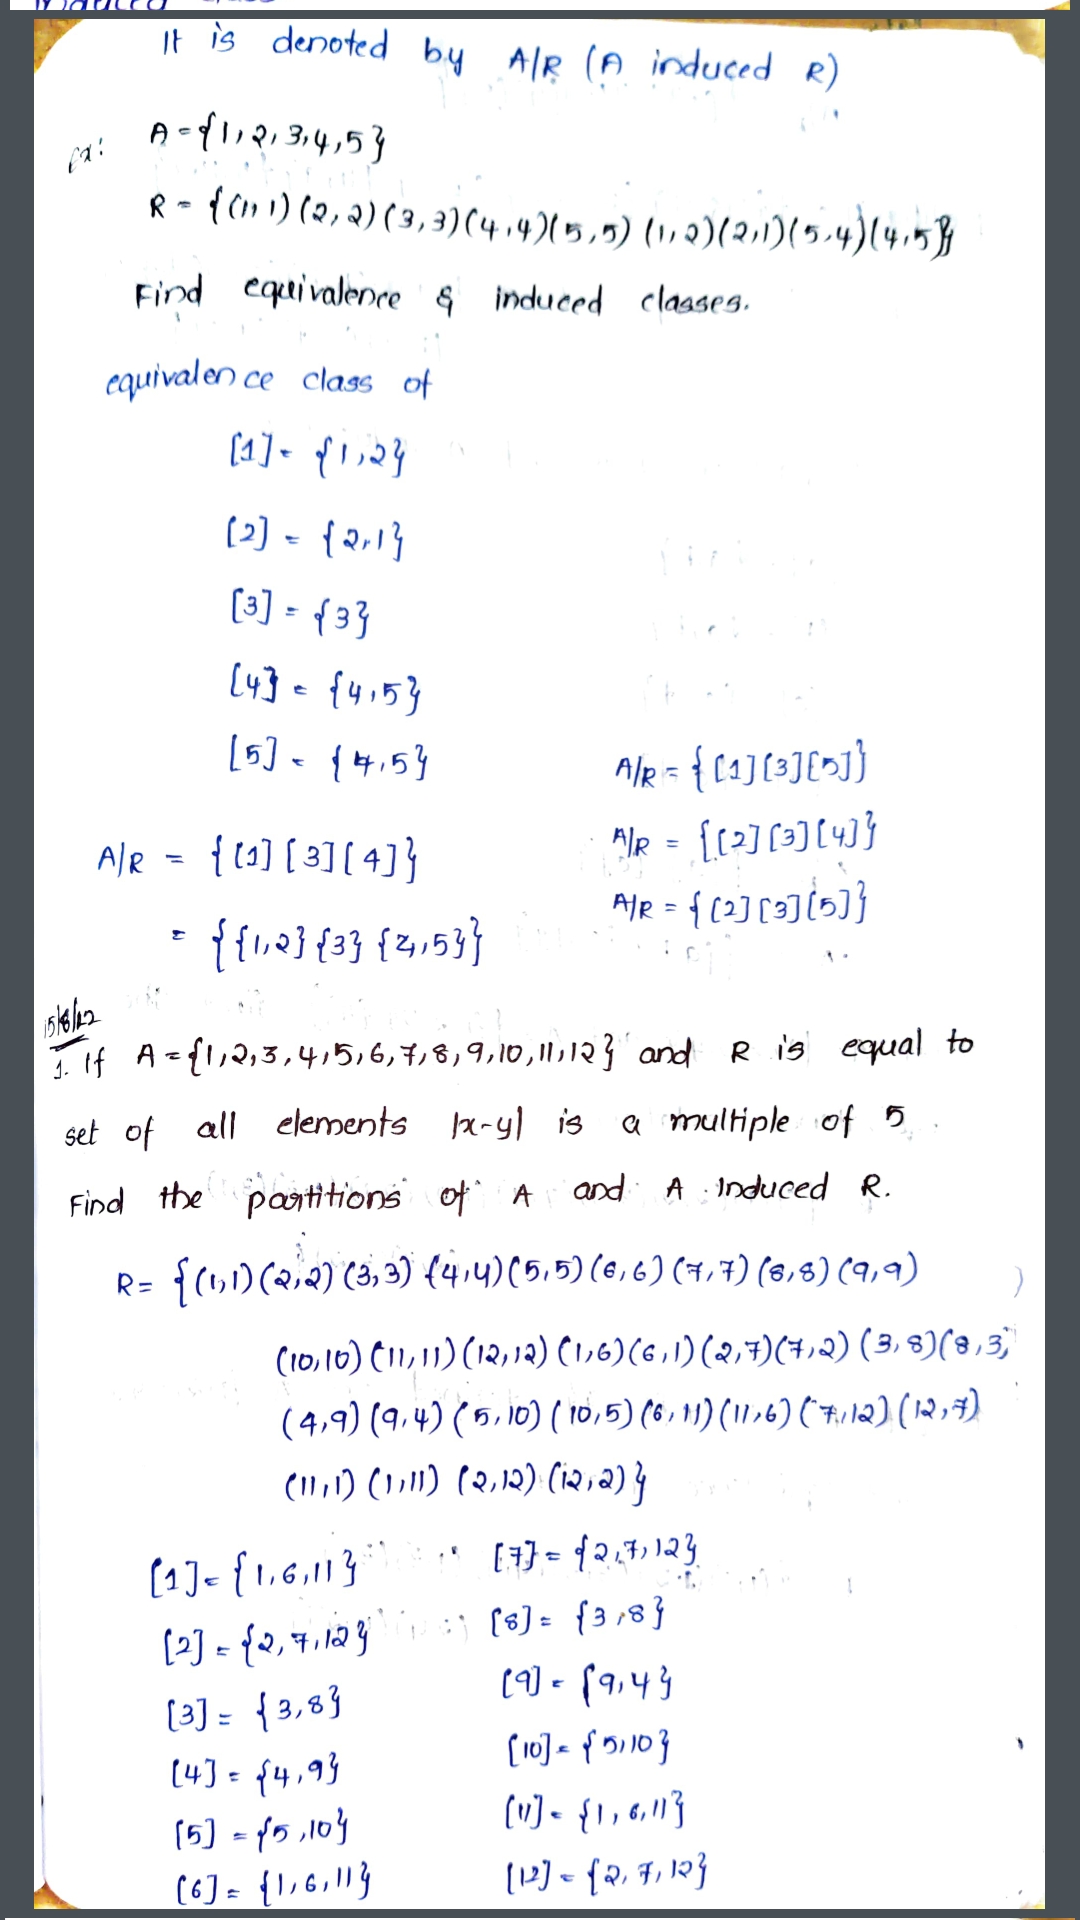 It is denoted by A/R (A induced R)
Ex: A = {1, 2, 3, 4, 5}
R = {(1, 1) (2, 2) (3, 3) (4, 4) (5, 5) (1, 2) (2, 1) (5, 4) (4, 5)}
Find equivalence & induced classes.
equivalence class of
[1] = {1, 2}
[2] = {2, 1}
[3] = {3}
[4] = {4, 5}
[5] = {4, 5}
A/R = {[1] [3] [5]}
A/R = {[2] [3] [4]}
A/R = {[2] [3] [5]}
A/R = {[1] [3] [4]}
= {{1, 2} {3} {4, 5}}
15/8/22
1. If A = {1, 2, 3, 4, 5, 6, 7, 8, 9, 10, 11, 12} and R is equal to
set of all elements |x-y| is a multiple of 5
Find the partitions of A and A Induced R.
R = {(1, 1) (2, 2) (3, 3) (4, 4) (5, 5) (6, 6) (7, 7) (8, 8) (9, 9)
(10, 10) (11, 11) (12, 12) (1, 6) (6, 1) (2, 7) (7, 2) (3, 8) (8, 3)
(4, 9) (9, 4) (5, 10) (10, 5) (6, 11) (11, 6) (7, 12) (12, 7)
(11, 1) (1, 11) (2, 12) (12, 2)}
[1] = {1, 6, 11}
[2] = {2, 7, 12}
[3] = {3, 8}
[4] = {4, 9}
[5] = {5, 10}
[6] = {1, 6, 11}
[7] = {2, 7, 12}
[8] = {3, 8}
[9] = {9, 4}
[10] = {5, 10}
[11] = {1, 6, 11}
[12] = {2, 7, 12}